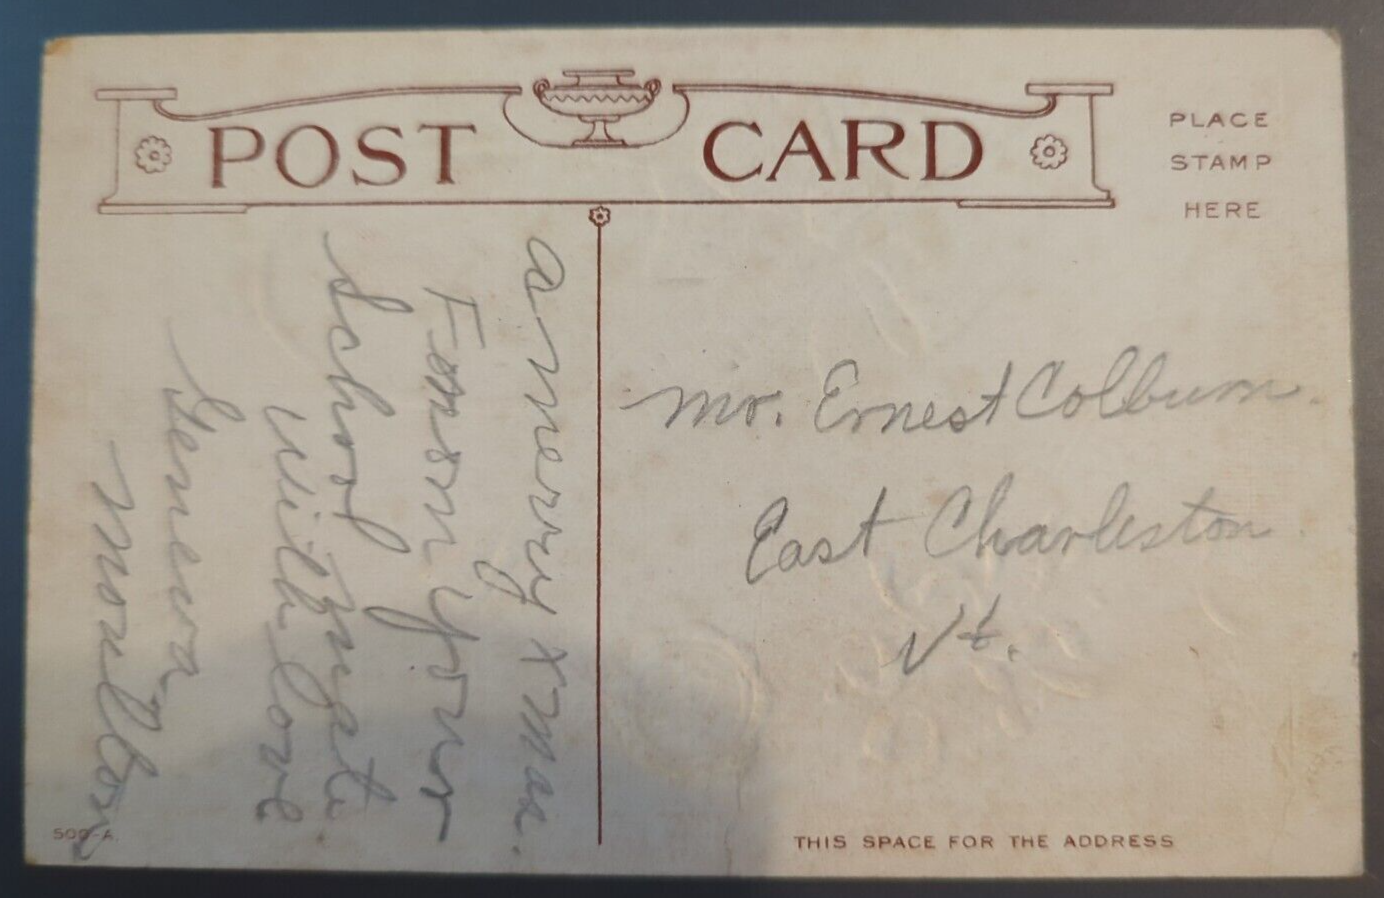 POST CARD
PLACE
STAMP
HERE
a merry xmas.
From your
School mate
With love
Geneva
Moulton
Mr. Ernest Colburn.
East Charleston
Vt.
500-A.
THIS SPACE FOR THE ADDRESS